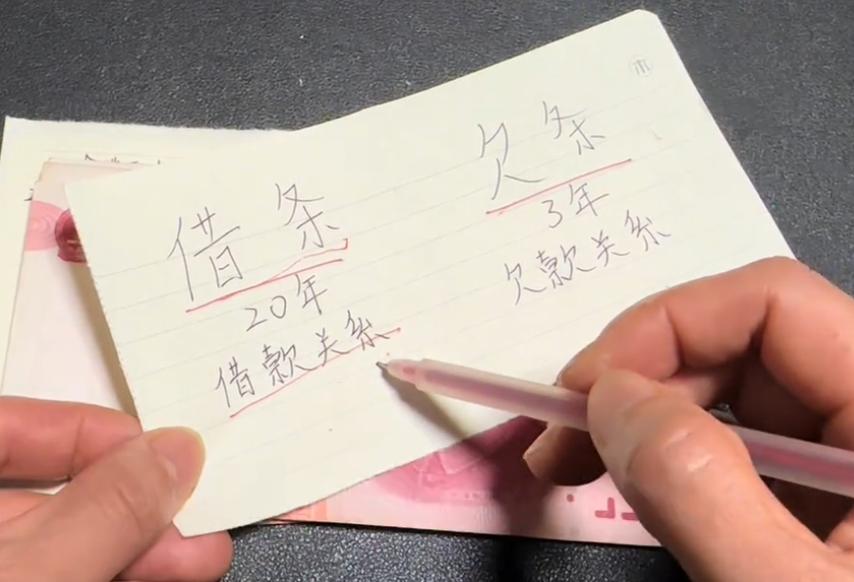 借条
20年
借款关系
欠条
3年
欠款关系